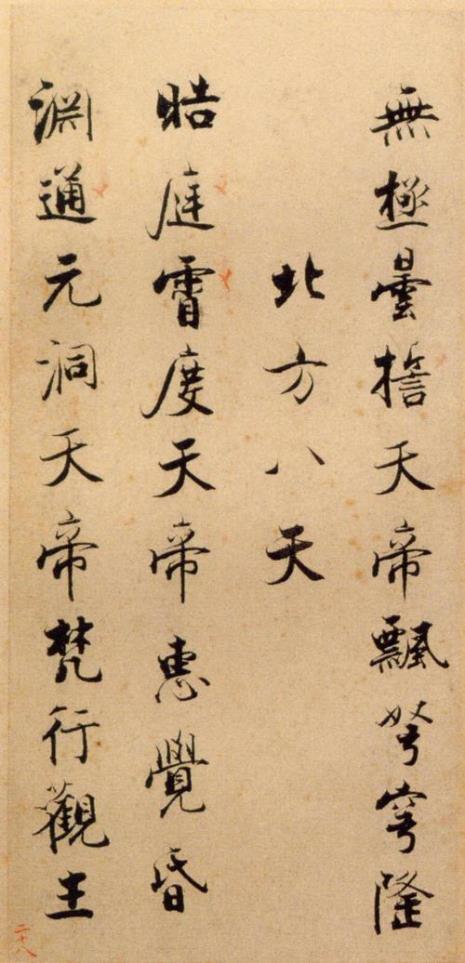 無極曇誓天帝飄弩穹隆
北方八天
晧庭霄度天帝惠覺昏
淵通元洞天帝梵行觀生
二十八